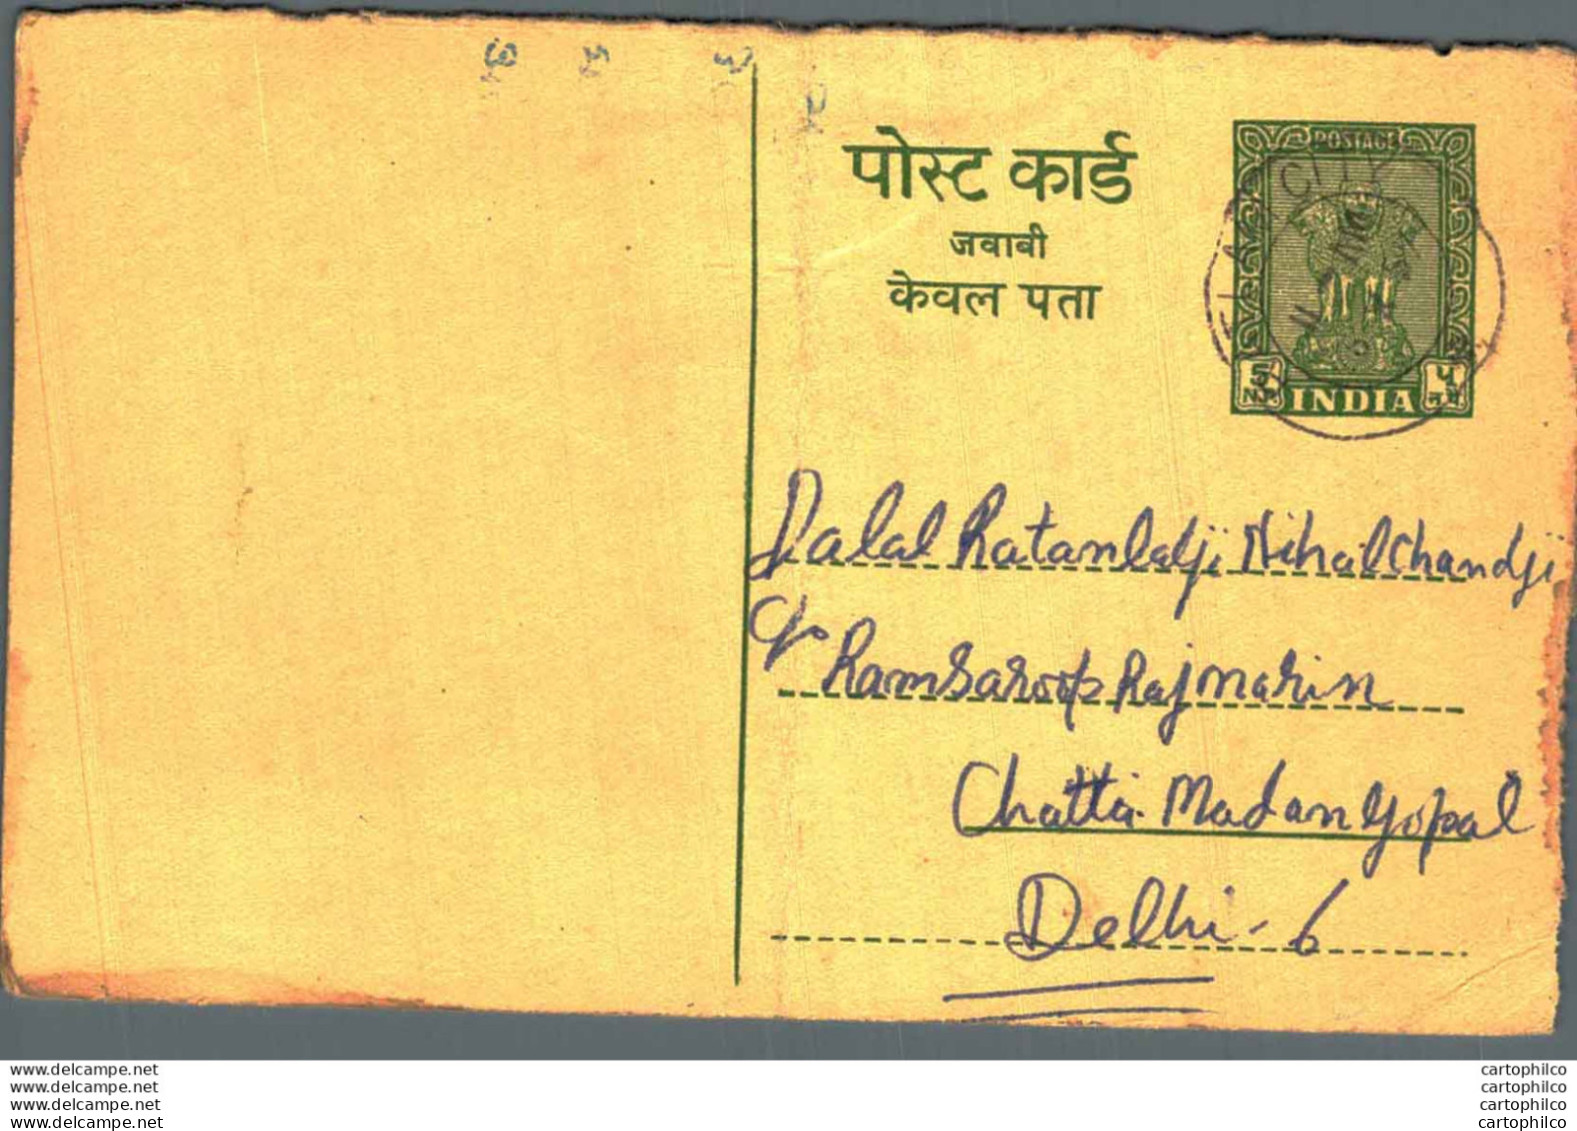 पोस्ट कार्ड
जवाबी
केवल पता
POSTAGE
CITY
5 ५
N.P. न.पै.
INDIA
Dalal Ratanlalji Nihalchandji
c/o Ramsaroop Rajnarin
Chatta Madan Gopal
Delhi-6
www.delcampe.net
www.delcampe.net
www.delcampe.net
www.delcampe.net
cartophilco
cartophilco
cartophilco
cartophilco